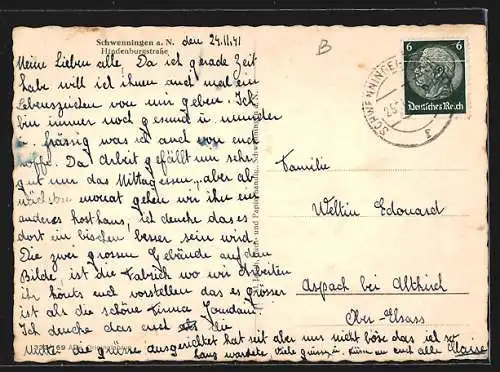 Schwenningen a. N.
Hindenburgstraße
den 24.11.41
Meine lieben alle, Da ich gerade Zeit
habe will ich ihnen auch mal ein
Lebenszeichen von mir geben. Ich
bin immer noch gesund u. munder
was ich auch von euch
hoffe. Da Arbeit gefällt uns sehr
gut nur das Mittagessen, aber ab
nächsten monat gehen wir ihn ein
anderes kosthaus, ich denke das es
dort ein bischen besser sein wird.
Die zwei grossen Gebäude auf dem
Bilde, ist die Fabrick wo wir Arbeiten
ihr könts euch vorstellen das es grösser
ist als die schöne Firma
Ich denke das euch die
die grüsse ausgerichtet hat seit aber uns nicht böse das ich so
lang wartete viele grüsse u. küsse an euch alle
B
6 6
Deutsches Reich
SCHWENNINGEN
Familie
Weltin Edouard
Aspach bei Altkirch
Ober-Elsass